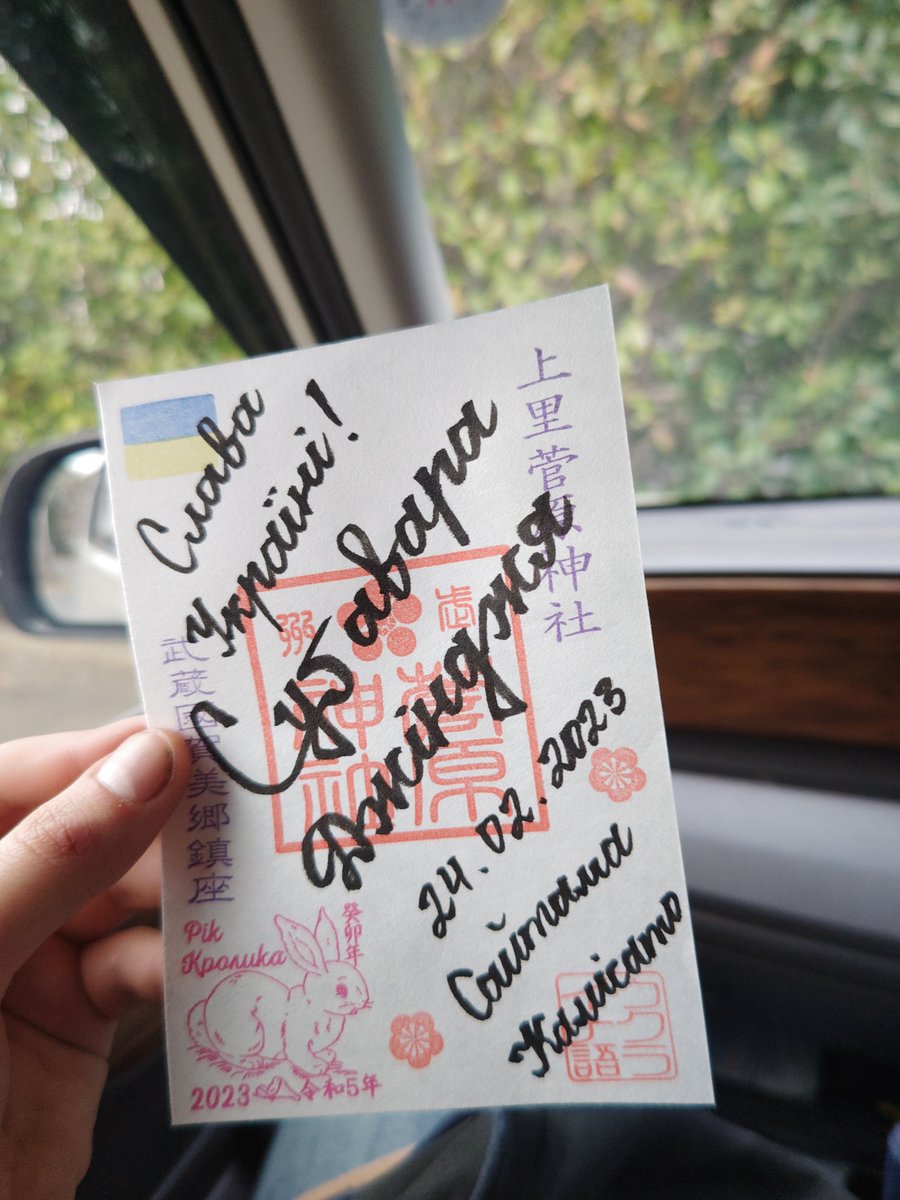 Слава
Україні!
Сугавара
Джінджя
24.02.2023
Сайтама
Камісато
上里菅原神社
菅原
神社
武蔵國賀美郷鎮座
Рік
Кролика
癸卯年
2023 令和5年